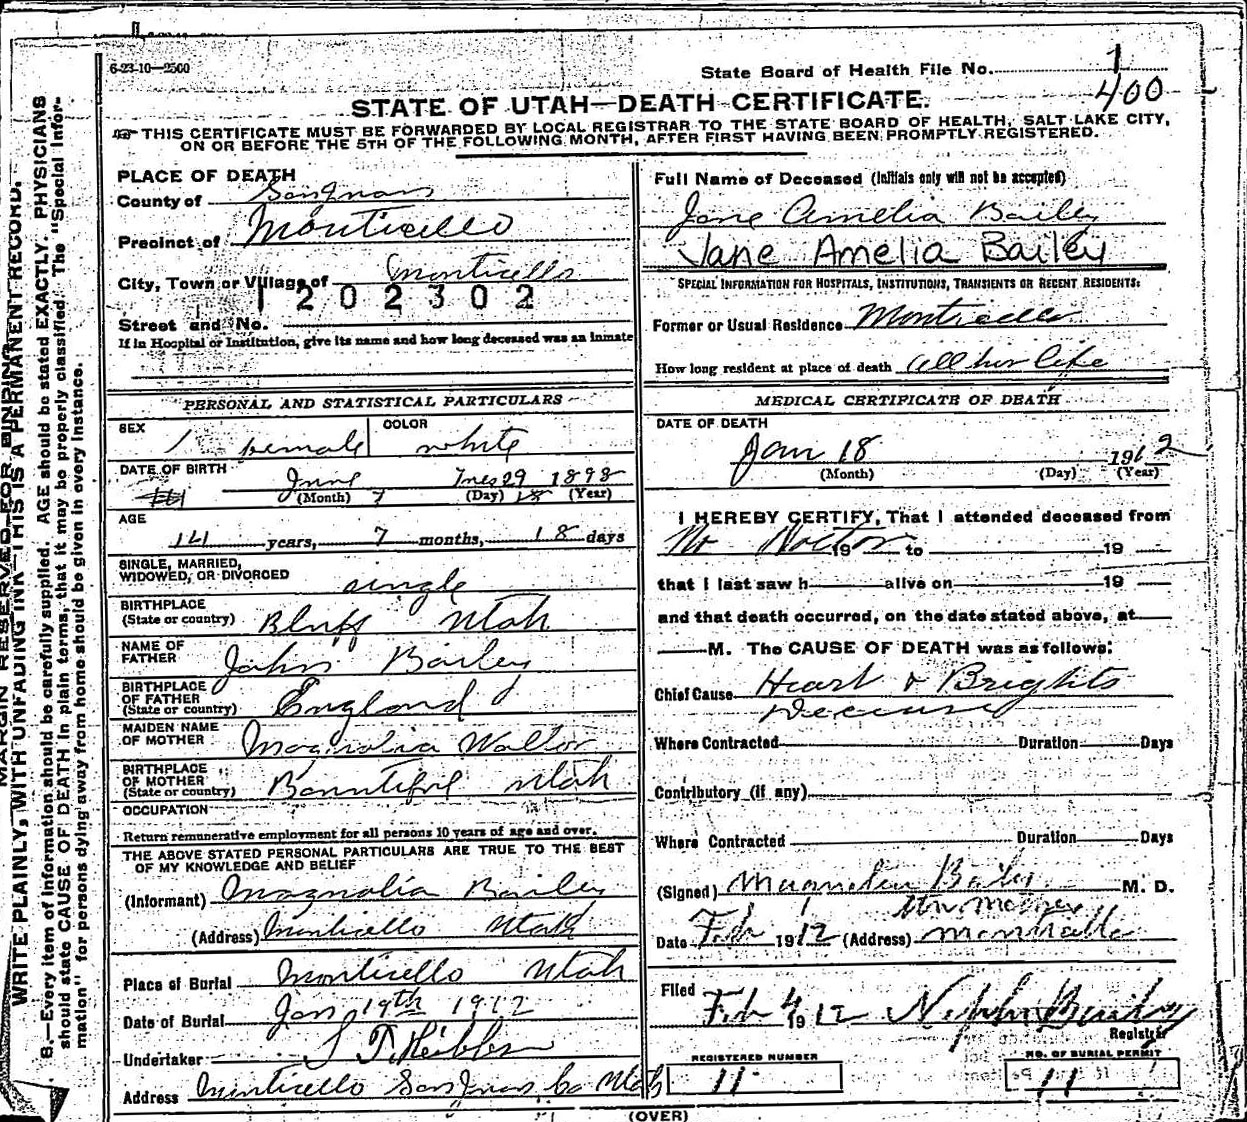 6-23-10—2500
State Board of Health File No. 1
400
STATE OF UTAH—DEATH CERTIFICATE.
THIS CERTIFICATE MUST BE FORWARDED BY LOCAL REGISTRAR TO THE STATE BOARD OF HEALTH, SALT LAKE CITY,
ON OR BEFORE THE 5TH OF THE FOLLOWING MONTH, AFTER FIRST HAVING BEEN PROMPTLY REGISTERED.
MARGIN RESERVED FOR BINDING
WRITE PLAINLY, WITH UNFADING INK—THIS IS A PERMANENT RECORD.
B.—Every item of information should be carefully supplied. AGE should be stated EXACTLY. PHYSICIANS
should state CAUSE OF DEATH in plain terms, that it may be properly classified. The "Special Infor-
mation" for persons dying away from home should be given in every instance.
PLACE OF DEATH
County of San Juan
Precinct of Monticello
City, Town or Village of Monticello
1202302
Street and No.
If in Hospital or Institution, give its name and how long deceased was an inmate
PERSONAL AND STATISTICAL PARTICULARS
SEX female COLOR white
DATE OF BIRTH June 29 1898
(Month) 7 (Day) 18 (Year)
AGE
14 years, 7 months, 18 days
SINGLE, MARRIED,
WIDOWED, OR DIVORCED single
BIRTHPLACE
(State or country) Bluff Utah
NAME OF
FATHER John Bailey
BIRTHPLACE
OF FATHER
(State or country) England
MAIDEN NAME
OF MOTHER Magnolia Walton
BIRTHPLACE
OF MOTHER
(State or country) Bountiful Utah
OCCUPATION
Return remunerative employment for all persons 10 years of age and over.
THE ABOVE STATED PERSONAL PARTICULARS ARE TRUE TO THE BEST
OF MY KNOWLEDGE AND BELIEF
(Informant) Magnolia Bailey
(Address) Monticello Utah
Place of Burial Monticello Utah
Date of Burial Jan 19th 1912
Undertaker
Address Monticello San Juan Co Utah
Full Name of Deceased (Initials only will not be accepted)
Jane Amelia Bailey
Jane Amelia Bailey
SPECIAL INFORMATION FOR HOSPITALS, INSTITUTIONS, TRANSIENTS OR RECENT RESIDENTS:
Former or Usual Residence Monticello
How long resident at place of death all her life
MEDICAL CERTIFICATE OF DEATH
DATE OF DEATH
Jan 18 1912
(Month) (Day) (Year)
I HEREBY CERTIFY, That I attended deceased from
No Doctor 19 to 19
that I last saw h alive on 19
and that death occurred, on the date stated above, at
M. The CAUSE OF DEATH was as follows:
Chief Cause Heart & Brights
Decease
Where Contracted Duration Days
Contributory (if any)
Where Contracted Duration Days
(Signed) Magnolia Bailey M. D.
Date Feb 1912 (Address) Monticello
Filed Feb 4 1912 Nephi Bailey
Registrar
REGISTERED NUMBER
11
NO. OF BURIAL PERMIT
11
(OVER)